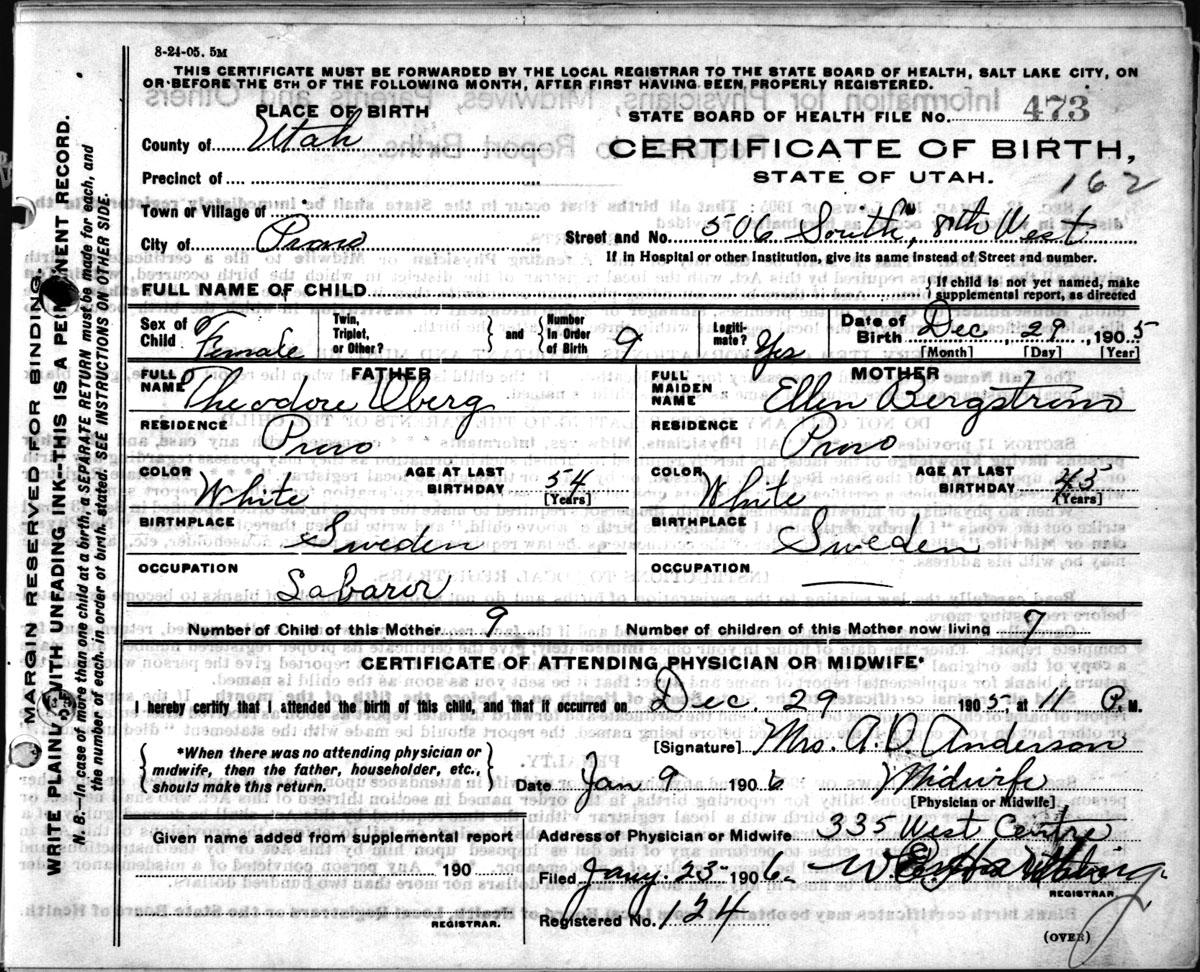 8-24-05. 5M
THIS CERTIFICATE MUST BE FORWARDED BY THE LOCAL REGISTRAR TO THE STATE BOARD OF HEALTH, SALT LAKE CITY, ON
OR BEFORE THE 5TH OF THE FOLLOWING MONTH, AFTER FIRST HAVING BEEN PROPERLY REGISTERED.
PLACE OF BIRTH
STATE BOARD OF HEALTH FILE No. 473
County of Utah
CERTIFICATE OF BIRTH,
Precinct of
STATE OF UTAH.
162
Town or Village of
City of Provo
Street and No. 506 South, 8th West
If in Hospital or other Institution, give its name instead of Street and number.
FULL NAME OF CHILD
{ If child is not yet named, make
supplemental report, as directed
Sex of Child Female
Twin, Triplet, or Other?
and
Number in Order of Birth 9
Legitimate? Yes
Date of Birth Dec, 29, 1905
[Month] [Day] [Year]
FATHER
FULL NAME Theodore Oberg
MOTHER
FULL MAIDEN NAME Ellen Bergstrom
RESIDENCE Provo
RESIDENCE Provo
COLOR White
AGE AT LAST BIRTHDAY 54
[Years]
COLOR White
AGE AT LAST BIRTHDAY 45
[Years]
BIRTHPLACE Sweden
BIRTHPLACE Sweden
OCCUPATION Labaror
OCCUPATION
Number of Child of this Mother 9
Number of children of this Mother now living 7
CERTIFICATE OF ATTENDING PHYSICIAN OR MIDWIFE*
I hereby certify that I attended the birth of this child, and that it occurred on Dec. 29 1905 at 11 P. M.
[Signature] Mrs. A. D. Anderson
{ *When there was no attending physician or
midwife, then the father, householder, etc.,
should make this return. }
Date Jan 9 1906 Midwife
[Physician or Midwife]
Given name added from supplemental report
Address of Physician or Midwife 335 West Centre
190
Filed Jany. 23 1906
REGISTRAR.
REGISTRAR.
Registered No. 124
(OVER)
MARGIN RESERVED FOR BINDING.
WRITE PLAINLY WITH UNFADING INK--THIS IS A PERMINENT RECORD.
N. B.—In case of more than one child at a birth, a SEPARATE RETURN must be made for each, and
the number of each, in order of birth, stated. SEE INSTRUCTIONS ON OTHER SIDE.